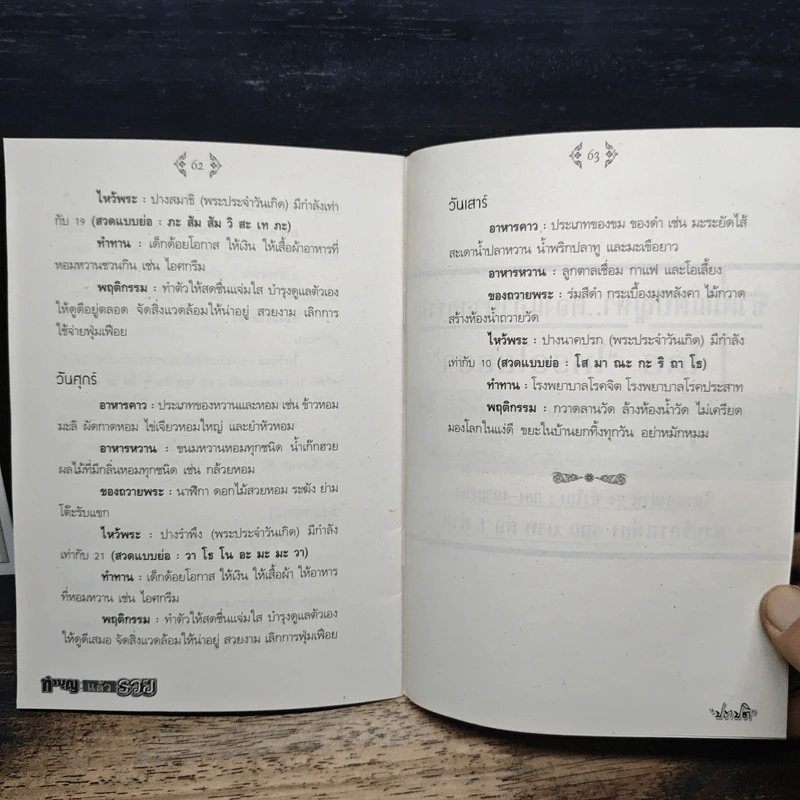 62
ไหว้พระ : ปางสมาธิ (พระประจำวันเกิด) มีกำลังเท่า
กับ 19 (สวดแบบย่อ : ภะ สัม สัม วิ สะ เท ภะ)
ทำทาน : เด็กด้อยโอกาส ให้เงิน ให้เสื้อผ้าอาหารที่
หอมหวานชวนกิน เช่น ไอศกรีม
พฤติกรรม : ทำตัวให้สดชื่นแจ่มใส บำรุงดูแลตัวเอง
ให้ดูดีอยู่ตลอด จัดสิ่งแวดล้อมให้น่าอยู่ สวยงาม เลิกการ
ใช้จ่ายฟุ่มเฟือย
วันศุกร์
อาหารคาว : ประเภทของหวานและหอม เช่น ข้าวหอม
มะลิ ผัดกาดหอม ไข่เจียวหอมใหญ่ และยำหัวหอม
อาหารหวาน : ขนมหวานหอมทุกชนิด น้ำเก๊กฮวย
ผลไม้ที่มีกลิ่นหอมทุกชนิด เช่น กล้วยหอม
ของถวายพระ : นาฬิกา ดอกไม้สวยหอม ระฆัง ย่าม
โต๊ะรับแขก
ไหว้พระ : ปางรำพึง (พระประจำวันเกิด) มีกำลัง
เท่ากับ 21 (สวดแบบย่อ : วา โธ โน อะ มะ มะ วา)
ทำทาน : เด็กด้อยโอกาส ให้เงิน ให้เสื้อผ้า ให้อาหาร
ที่หอมหวาน เช่น ไอศกรีม
พฤติกรรม : ทำตัวให้สดชื่นแจ่มใส บำรุงดูแลตัวเอง
ให้ดูดีเสมอ จัดสิ่งแวดล้อมให้น่าอยู่ สวยงาม เลิกการฟุ่มเฟือย
ทำบุญ แล้ว รวย
63
วันเสาร์
อาหารคาว : ประเภทของขม ของดำ เช่น มะระยัดไส้
สะเดาน้ำปลาหวาน น้ำพริกปลาทู และมะเขือยาว
อาหารหวาน : ลูกตาลเชื่อม กาแฟ และโอเลี้ยง
ของถวายพระ : ร่มสีดำ กระเบื้องมุงหลังคา ไม้กวาด
สร้างห้องน้ำถวายวัด
ไหว้พระ : ปางนาคปรก (พระประจำวันเกิด) มีกำลัง
เท่ากับ 10 (สวดแบบย่อ : โส มา ณะ กะ ริ ถา โธ)
ทำทาน : โรงพยาบาลโรคจิต โรงพยาบาลโรคประสาท
พฤติกรรม : กวาดลานวัด ล้างห้องน้ำวัด ไม่เครียด
มองโลกในแง่ดี ขยะในบ้านยกทิ้งทุกวัน อย่าหมักหมม